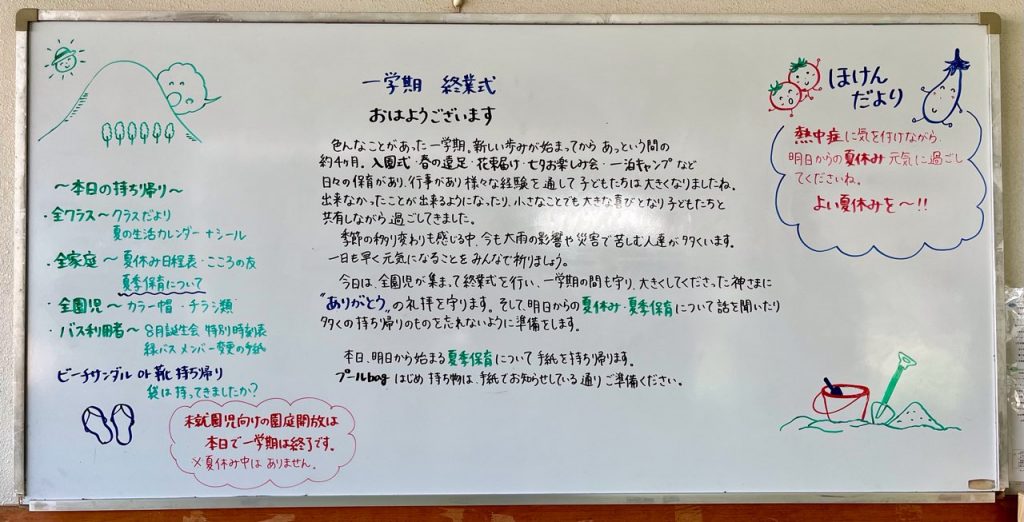 一学期 終業式
おはようございます
色んなことがあった一学期。新しい歩みが始まってから あっという間の
約4ヶ月。入園式・春の遠足・花束届け・七夕お楽しみ会・一泊キャンプなど
日々の保育があり、行事があり様々な経験を通して子どもたちは大きくなりましたね。
出来なかったことが出来るようになったり、小さなことでも大きな喜びとなり子どもたちと
共有しながら過ごしてきました。
季節の移り変わりも感じる中、今も大雨の影響や災害で苦しむ人達が多くいます。
一日も早く元気になることをみんなで祈りましょう。
今日は、全園児が集まって終業式を行い、一学期の間も守り、大きくしてくださった神さまに
"ありがとう"の礼拝を守ります。そして、明日からの夏休み・夏季保育について話を聞いたり
多くの持ち帰りのものを忘れないように準備をします。
本日、明日から始まる夏季保育について手紙を持ち帰ります。
プールbagはじめ持ち物は、手紙でお知らせしている通りご準備ください。
〜本日の持ち帰り〜
・全クラス〜クラスだより
夏の生活カレンダー+シール
・全家庭〜夏休み日程表・こころの友
夏季保育について
・全園児〜カラー帽・チラシ類
・バス利用者〜8月誕生会 特別時刻表
緑バス メンバー変更の手紙
ビーチサンダル or 靴 持ち帰り
袋は持ってきましたか?
未就園児向けの園庭開放は
本日で一学期は終了です。
※夏休み中はありません。
ほけん
だより
熱中症に気を付けながら、
明日からの夏休み 元気に過ごし
てくださいね。
よい夏休みを〜!!